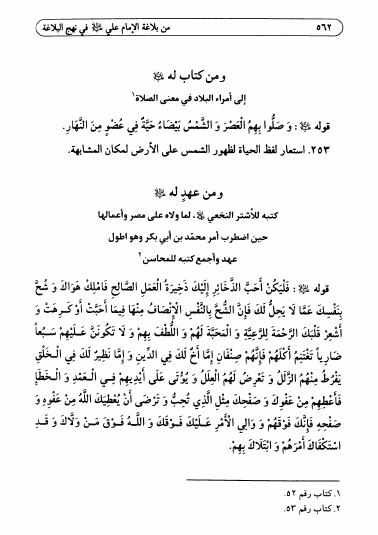 ٥٦٢ من بلاغة الإمام علي ﷷ في نهج البلاغة
ومن كتاب له ﷷ
إلى أمراء البلاد في معنى الصلاة١
قوله ﷷ: وَ صَلُّوا بِهِمُ الْعَصْرَ وَ الشَّمْسُ بَيْضَاءُ حَيَّةٌ فِي عُضْوٍ مِنَ النَّهَارِ.
٢٥٣. استعار لفظ الحياة لظهور الشمس على الأرض لمكان المشابهة.
ومن عهدٍ له ﷷ
كتبه للأشتر النخعي، لما ولاه على مصر وأعمالها
حين اضطرب أمر محمّد بن أبي بكر وهو اطول
عهد وأجمع كتبه للمحاسن٢
قوله ﷷ: فَلْيَكُنْ أَحَبَّ الذَّخَائِرِ إِلَيْكَ ذَخِيرَةُ الْعَمَلِ الصَّالِحِ فَامْلِكْ هَوَاكَ وَ شُحَّ
بِنَفْسِكَ عَمَّا لَا يَحِلُّ لَكَ فَإِنَّ الشُّحَّ بِالنَّفْسِ الْإِنْصَافُ مِنْهَا فِيمَا أَحَبَّتْ أَوْ كَرِهَتْ وَ
أَشْعِرْ قَلْبَكَ الرَّحْمَةَ لِلرَّعِيَّةِ وَ الْمَحَبَّةَ لَهُمْ وَ اللُّطْفَ بِهِمْ وَ لَا تَكُونَنَّ عَلَيْهِمْ سَبُعاً
ضَارِياً تَغْتَنِمُ أَكْلَهُمْ فَإِنَّهُمْ صِنْفَانِ إِمَّا أَخٌ لَكَ فِي الدِّينِ وَ إِمَّا نَظِيرٌ لَكَ فِي الْخَلْقِ
يَفْرُطُ مِنْهُمُ الزَّلَلُ وَ تَعْرِضُ لَهُمُ الْعِلَلُ وَ يُؤْتَى عَلَى أَيْدِيهِمْ فِي الْعَمْدِ وَ الْخَطَإِ
فَأَعْطِهِمْ مِنْ عَفْوِكَ وَ صَفْحِكَ مِثْلِ الَّذِي تُحِبُّ وَ تَرْضَى أَنْ يُعْطِيَكَ اللَّهُ مِنْ عَفْوِهِ وَ
صَفْحِهِ فَإِنَّكَ فَوْقَهُمْ وَ وَالِي الْأَمْرِ عَلَيْكَ فَوْقَكَ وَ اللَّهُ فَوْقَ مَنْ وَلَّاكَ وَ قَدِ
اسْتَكْفَاكَ أَمْرَهُمْ وَ ابْتَلَاكَ بِهِمْ.
١. كتاب رقم ٥٢.
٢. كتاب رقم ٥٣.